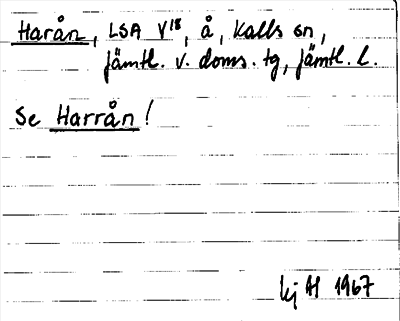 Harån, LSA V¹⁸, å, Kalls sn,
Jämtl. v. doms. tg, Jämtl. l.
Se Harrån!
1967